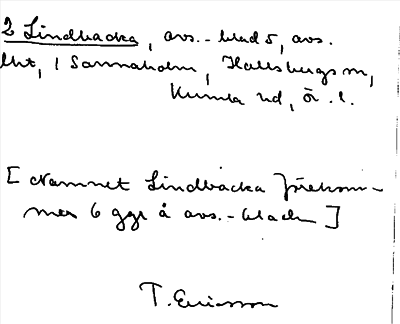 2 Lindbacka, avs.-blad 5, avs.
lht, i Sannaholm, Hallsbergs sn,
Kumla hd, Ör. l.
[Namnet Lindbacka förekom-
mer 6 ggr å avs.-bladen]
T. Ericsson